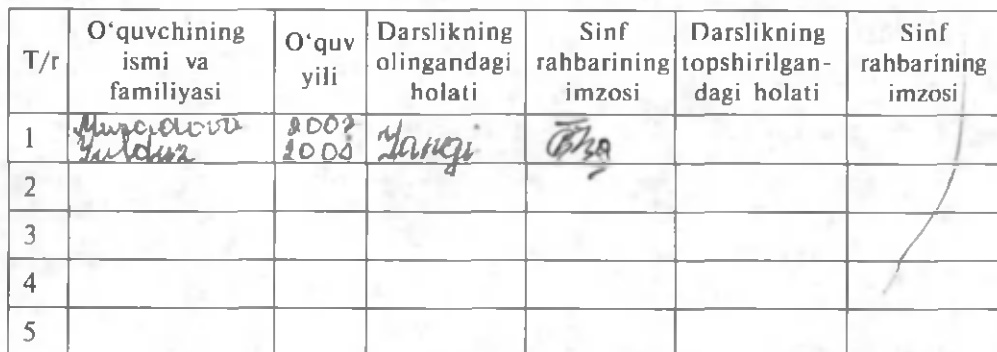 T/r | O‘quvchining ismi va familiyasi | O‘quv yili | Darslikning olingandagi holati | Sinf rahbarining imzosi | Darslikning topshirilgan-dagi holati | Sinf rahbarining imzosi
1 | Yulduz | Yangi
2
3
4
5